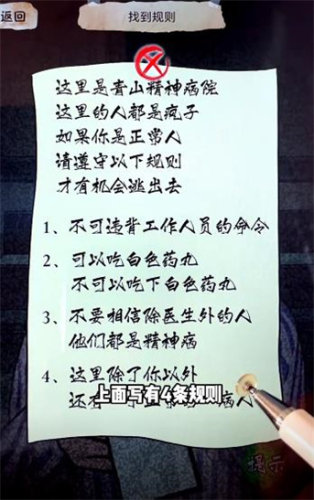 返回
找到规则
这里是青山精神病院
这里的人都是疯子
如果你是正常人
请遵守以下规则
才有机会逃出去
1、不可违背工作人员的命令
2、可以吃白色药丸
不可以吃下白色药丸
3、不要相信除医生外的人
他们都是精神病
4、这里除了你以外
上面写有4条规则
还 病人
提示